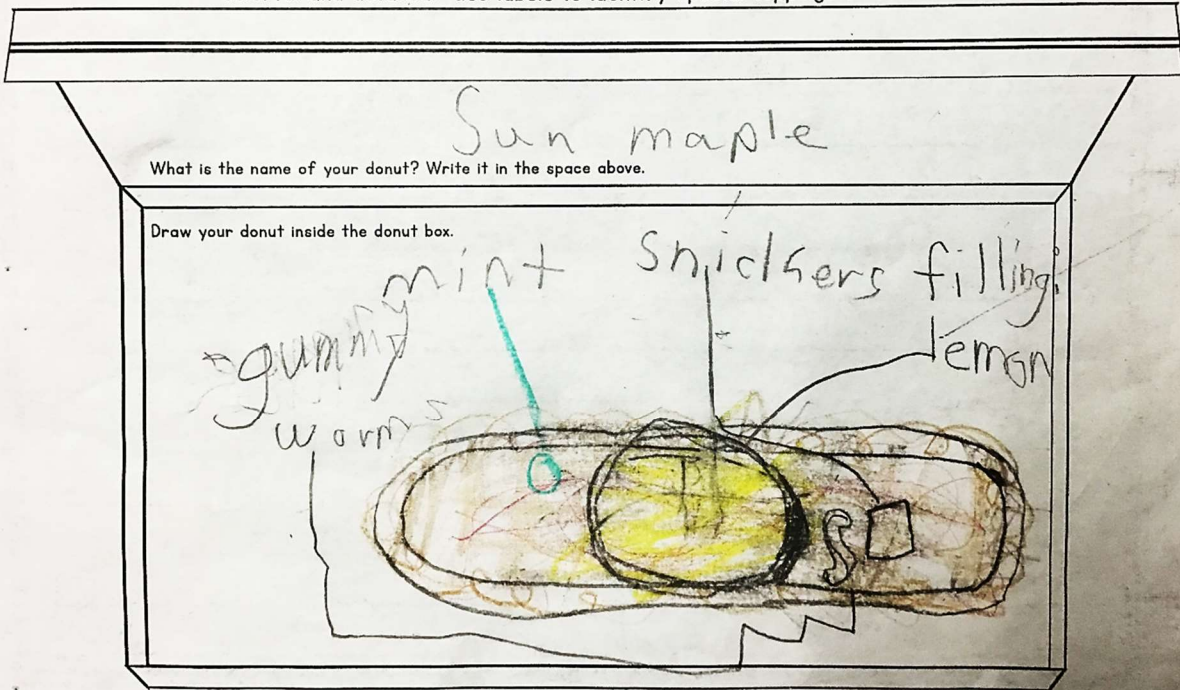 Sun maple
What is the name of your donut? Write it in the space above.
Draw your donut inside the donut box.
mint
Snickers filling
gummy
worms
lemon